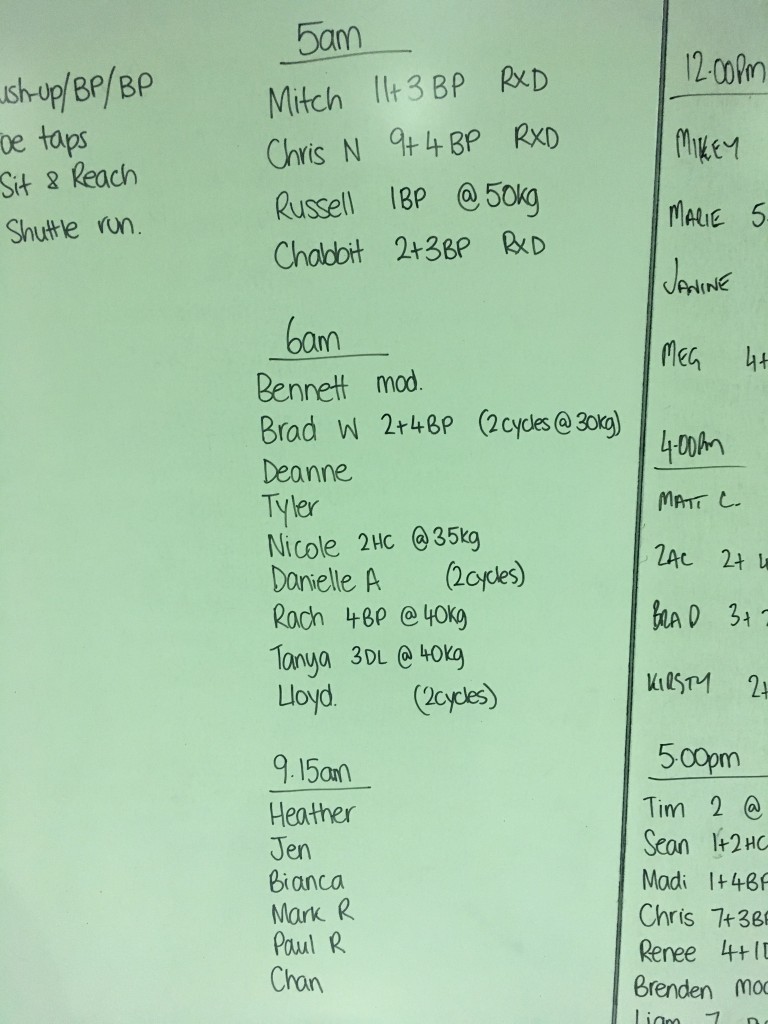 /BP/BP
taps
Sit & Reach
Shuttle run.
5am
Mitch 11+3 BP RXD
Chris N 9+4 BP RXD
Russell 1BP @50kg
Chabbit 2+3BP RXD
6am
Bennett mod.
Brad W 2+4BP (2cycles@30kg)
Deanne
Tyler
Nicole 2HC @35kg
Danielle A (2cycles)
Rach 4BP @40kg
Tanya 3DL @40kg
Lloyd. (2cycles)
9.15am
Heather
Jen
Bianca
Mark R
Paul R
Chan
12.00Pm
MIKEY
MARIE 5
JANINE
MEG 4+
4.00Pm
MATT C.
ZAC 2+ 4
BRAD 3+
KIRSTY 2+
5.00pm
Tim 2 @
Sean 1+2HC
Madi 1+4BP
Chris 7+3BP
Renee 4+1D
Brenden mod
Liam 7